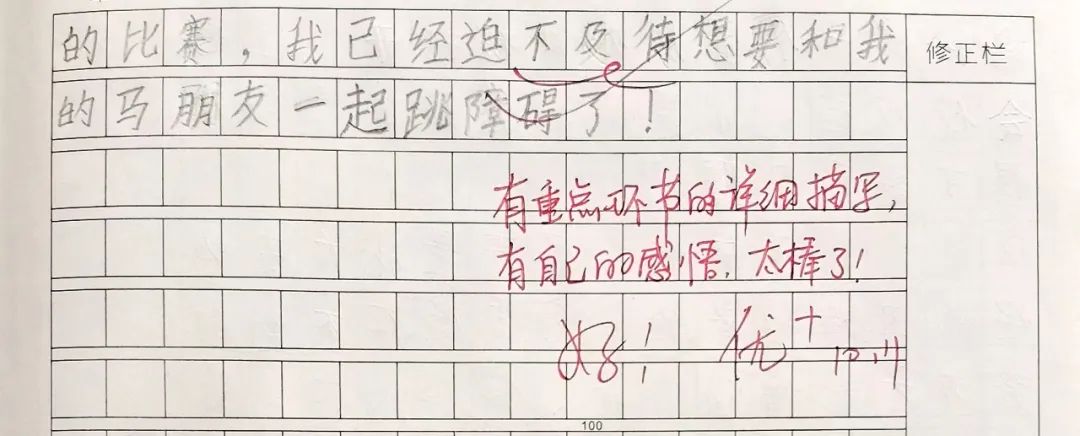 的比赛，我已经迫不及待想要和我
修正栏
的马朋友一起跳障碍了！
有重点环节的详细描写，
有自己的感悟，太棒了！
好！ 优+ 10.11
100